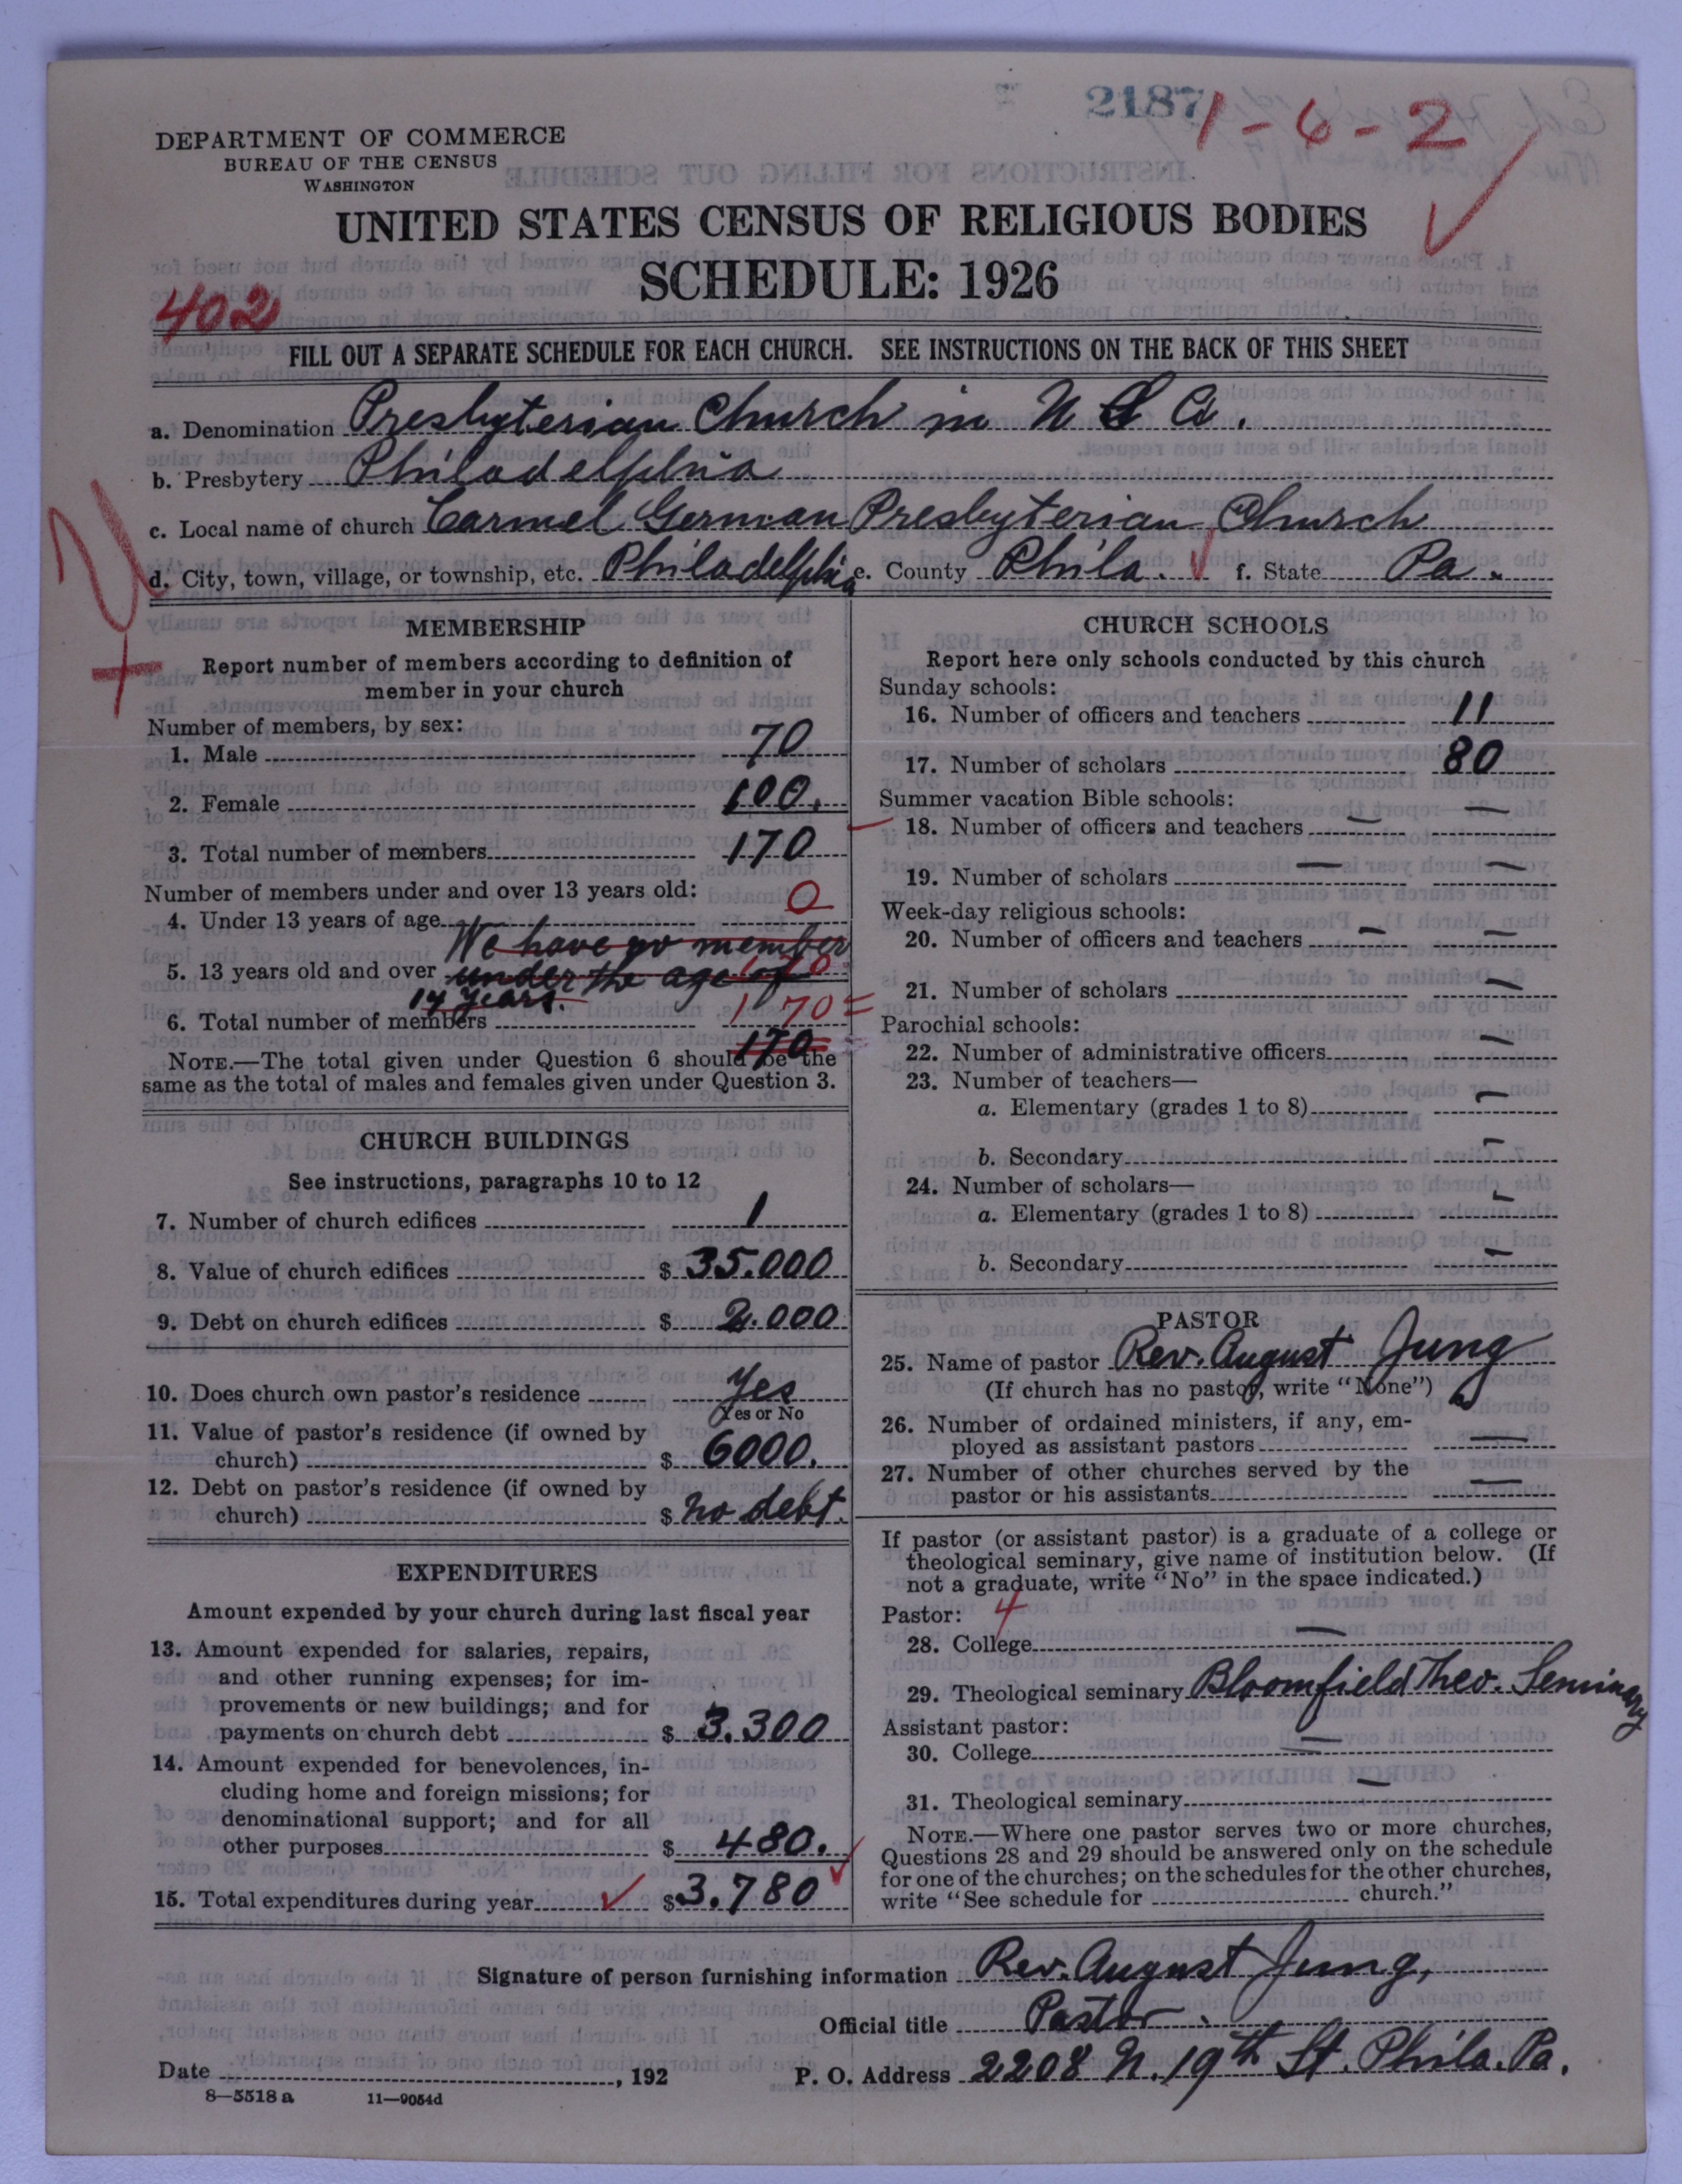 2187
1-6-2
DEPARTMENT OF COMMERCE
BUREAU OF THE CENSUS
WASHINGTON
UNITED STATES CENSUS OF RELIGIOUS BODIES
SCHEDULE: 1926
402
FILL OUT A SEPARATE SCHEDULE FOR EACH CHURCH. SEE INSTRUCTIONS ON THE BACK OF THIS SHEET
a. Denomination Presbyterian Church in U S A.
b. Presbytery Philadelphia
c. Local name of church Carmel German Presbyterian Church
d. City, town, village, or township, etc. Philadelphia e. County Phila. f. State Pa.
MEMBERSHIP
Report number of members according to definition of
member in your church
Number of members, by sex:
1. Male 70
2. Female 100.
3. Total number of members 170
Number of members under and over 13 years old:
4. Under 13 years of age 0
We have no member
5. 13 years old and over under the age of 170
14 years.
6. Total number of members 170
170
NOTE.—The total given under Question 6 should be the
same as the total of males and females given under Question 3.
CHURCH BUILDINGS
See instructions, paragraphs 10 to 12
7. Number of church edifices 1
8. Value of church edifices $ 35.000
9. Debt on church edifices $ 2.000
10. Does church own pastor's residence Yes
Yes or No
11. Value of pastor's residence (if owned by
church) $ 6000.
12. Debt on pastor's residence (if owned by
church) $ no debt.
EXPENDITURES
Amount expended by your church during last fiscal year
13. Amount expended for salaries, repairs,
and other running expenses; for im-
provements or new buildings; and for
payments on church debt $ 3.300
14. Amount expended for benevolences, in-
cluding home and foreign missions; for
denominational support; and for all
other purposes $ 480.
15. Total expenditures during year $ 3.780
CHURCH SCHOOLS
Report here only schools conducted by this church
Sunday schools:
16. Number of officers and teachers 11
17. Number of scholars 80
Summer vacation Bible schools:
18. Number of officers and teachers — —
19. Number of scholars — —
Week-day religious schools:
20. Number of officers and teachers — —
21. Number of scholars —
Parochial schools:
22. Number of administrative officers —
23. Number of teachers—
a. Elementary (grades 1 to 8) —
b. Secondary —
24. Number of scholars—
a. Elementary (grades 1 to 8) —
b. Secondary —
PASTOR
25. Name of pastor Rev. August Jung
(If church has no pastor, write "None")
26. Number of ordained ministers, if any, em-
ployed as assistant pastors —
27. Number of other churches served by the
pastor or his assistants —
If pastor (or assistant pastor) is a graduate of a college or
theological seminary, give name of institution below. (If
not a graduate, write "No" in the space indicated.)
Pastor: 4
28. College —
29. Theological seminary Bloomfield Theo. Seminary
Assistant pastor:
30. College —
31. Theological seminary —
NOTE.—Where one pastor serves two or more churches,
Questions 28 and 29 should be answered only on the schedule
for one of the churches; on the schedules for the other churches,
write "See schedule for church."
Signature of person furnishing information Rev. August Jung,
Official title Pastor.
Date , 192 P. O. Address 2208 N. 19th St. Phila. Pa.
8—5518 a 11—9054d